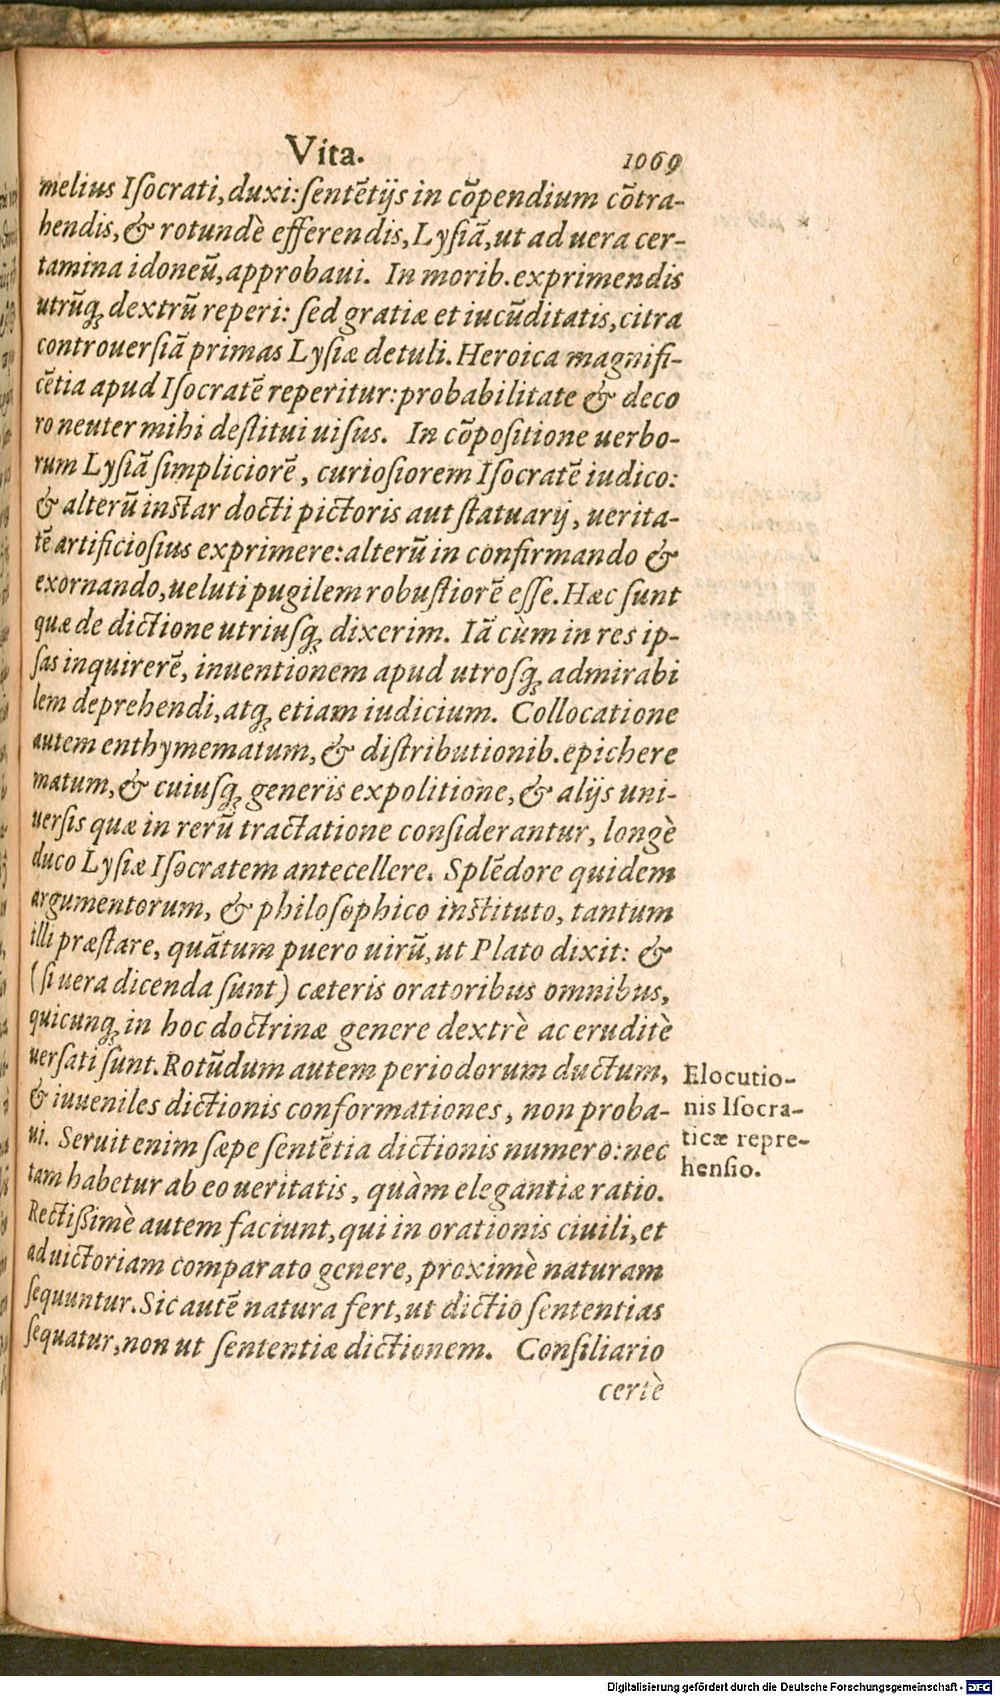 Vita. 1069
melius Iſocrati, duxi: ſentẽtijs in cõpendium cõtra-
hendis, & rotundè efferendis, Lyſiã, ut ad uera cer-
tamina idoneũ, approbaui. In morib. exprimendis
utrũq; dextrũ reperi: ſed gratiæ et iucũditatis, citra
controuerſiã primas Lyſiæ detuli. Heroica magnifi-
cẽtia apud Iſocratẽ reperitur: probabilitate & deco
ro neuter mihi deſtitui uiſus. In cõpoſitione uerbo-
rum Lyſiã ſimpliciorẽ, curioſiorem Iſocratẽ iudico:
& alterũ inſtar docti pictoris aut ſtatuarij, uerita-
tẽ artificioſius exprimere: alterũ in confirmando &
exornando, ueluti pugilem robuſtiorẽ eſſe. Hæc ſunt
quæ de dictione utriuſq; dixerim. Iã cùm in res ip-
ſas inquirerẽ, inuentionem apud utroſq; admirabi
lem deprehendi, atq; etiam iudicium. Collocatione
autem enthymematum, & diſtributionib. epichere
matum, & cuiuſq; generis expolitione, & alijs uni-
uerſis quæ in rerũ tractatione conſiderantur, longè
duco Lyſiæ Iſocratem antecellere. Splẽdore quidem
argumentorum, & philoſophico inſtituto, tantum
illi præſtare, quãtum puero uirũ, ut Plato dixit: &
(ſi uera dicenda ſunt) cæteris oratoribus omnibus,
quicunq; in hoc doctrinæ genere dextrè ac eruditè
uerſati ſunt. Rotũdum autem periodorum ductum,
& iuueniles dictionis conformationes, non proba-
ui. Seruit enim ſæpe ſentẽtia dictionis numero: nec
tam habetur ab eo ueritatis, quàm elegantiæ ratio.
Rectißimè autem faciunt, qui in orationis ciuili, et
ad uictoriam comparato genere, proximè naturam
ſequuntur. Sic autẽ natura fert, ut dictio ſententias
ſequatur, non ut ſententiæ dictionem. Conſiliario
certè
Elocutio-
nis Iſocra-
ticæ repre-
henſio.
Digitalisierung gefördert durch die Deutsche Forschungsgemeinschaft - DFG